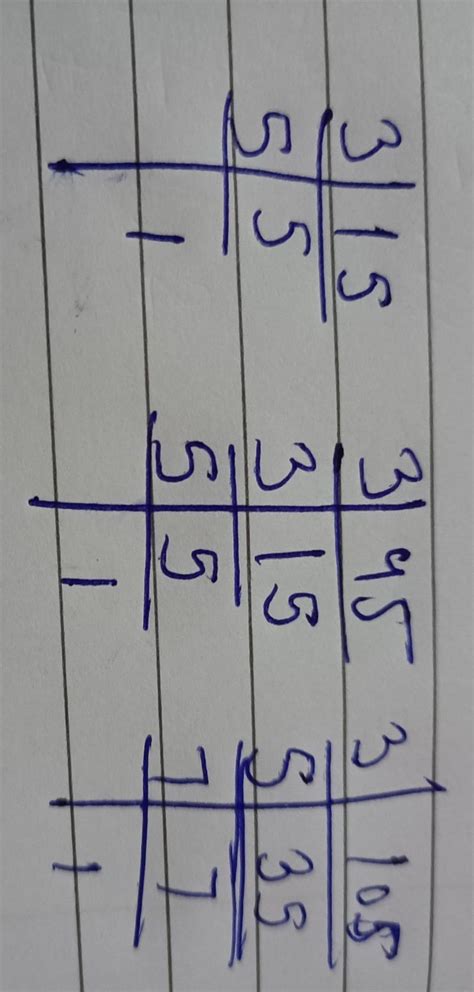 3 15 3 45 3 105
5 5 3 15 5 35
1 5 5 7 7
1 1